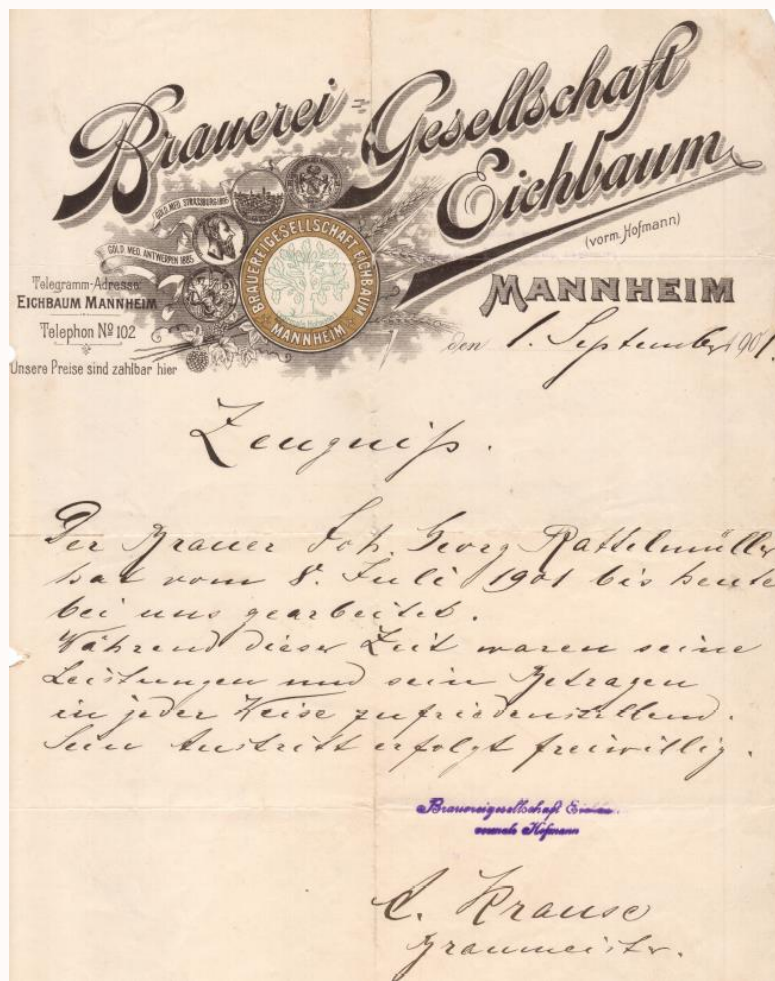 Brauerei-Gesellschaft
Eichbaum
(vorm. Hofmann)
GOLD. MED. STRASSBURG 1895
GOLD. MED. ANTWERPEN 1885
BRAUEREIGESELLSCHAFT EICHBAUM
MANNHEIM
Telegramm-Adresse:
EICHBAUM MANNHEIM
Telephon No 102
Unsere Preise sind zahlbar hier
MANNHEIM
den 1. September 1901.
Zeugniß.
Der Brauer Joh. Georg Rattelmüller
hat vom 8. Juli 1901 bis heute
bei uns gearbeitet.
Während dieser Zeit waren seine
Leistungen und sein Betragen
in jeder Weise zufriedenstellend.
Sein Austritt erfolgt freiwillig.
Brauereigesellschaft
vormals Hofmann
Krause
Braumeister.